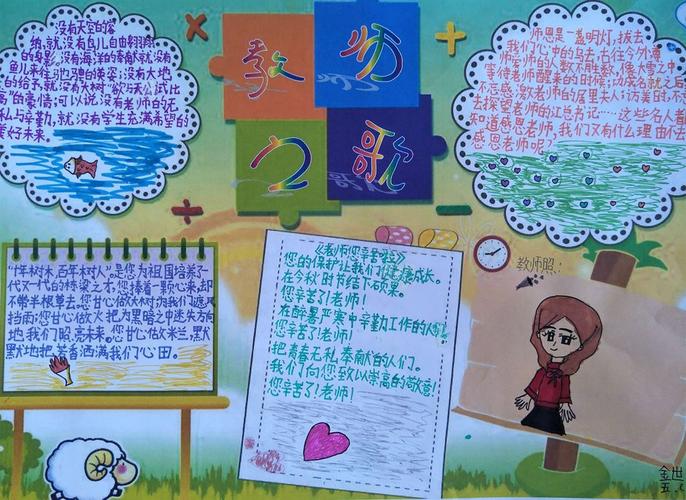 没有天空的宽
纳,就没有鸟儿自由翱翔
的身影,没有海洋的奉献就没有
鱼儿来往驰骋的英姿;没有大地
的给予,就没有大树"欲与天公试比
高"的豪情;可以说,没有老师的无
私与辛勤,就没有学生充满希望的
美好未来。
教师
之歌
师恩是一盏明灯,拔去
我们心中的乌云,古往今外,
师爱师的人数不胜数,像
事使老师醒来的时候;功成名就之后
不忘感激老师的居里夫人;访美时不忘
去探望老师的江总书记……这些名人都
知道感恩老师,我们又有什么理由不去
感恩老师呢?
"十年树木,百年树人"是您为祖国培养了
一代又一代的栋梁之才,您捧着一颗心来,却
不带半根草去,您甘心做大树,为我们遮风
挡雨;您甘心做火把,为黑暗之中迷失方向
地我们照亮未来。您甘心做米兰,默
默地把芳香洒满我们心田。
《老师您辛苦啦》
您的保护让我们健康成长。
在今秋时节结下硕果。
您辛苦了!老师!
在酷暑严寒中辛勤工作的人们。
您辛苦了!老师!
把青春无私奉献的人们。
我们向您致以崇高的敬意!
您辛苦了!老师!
教师照:
金世
五.